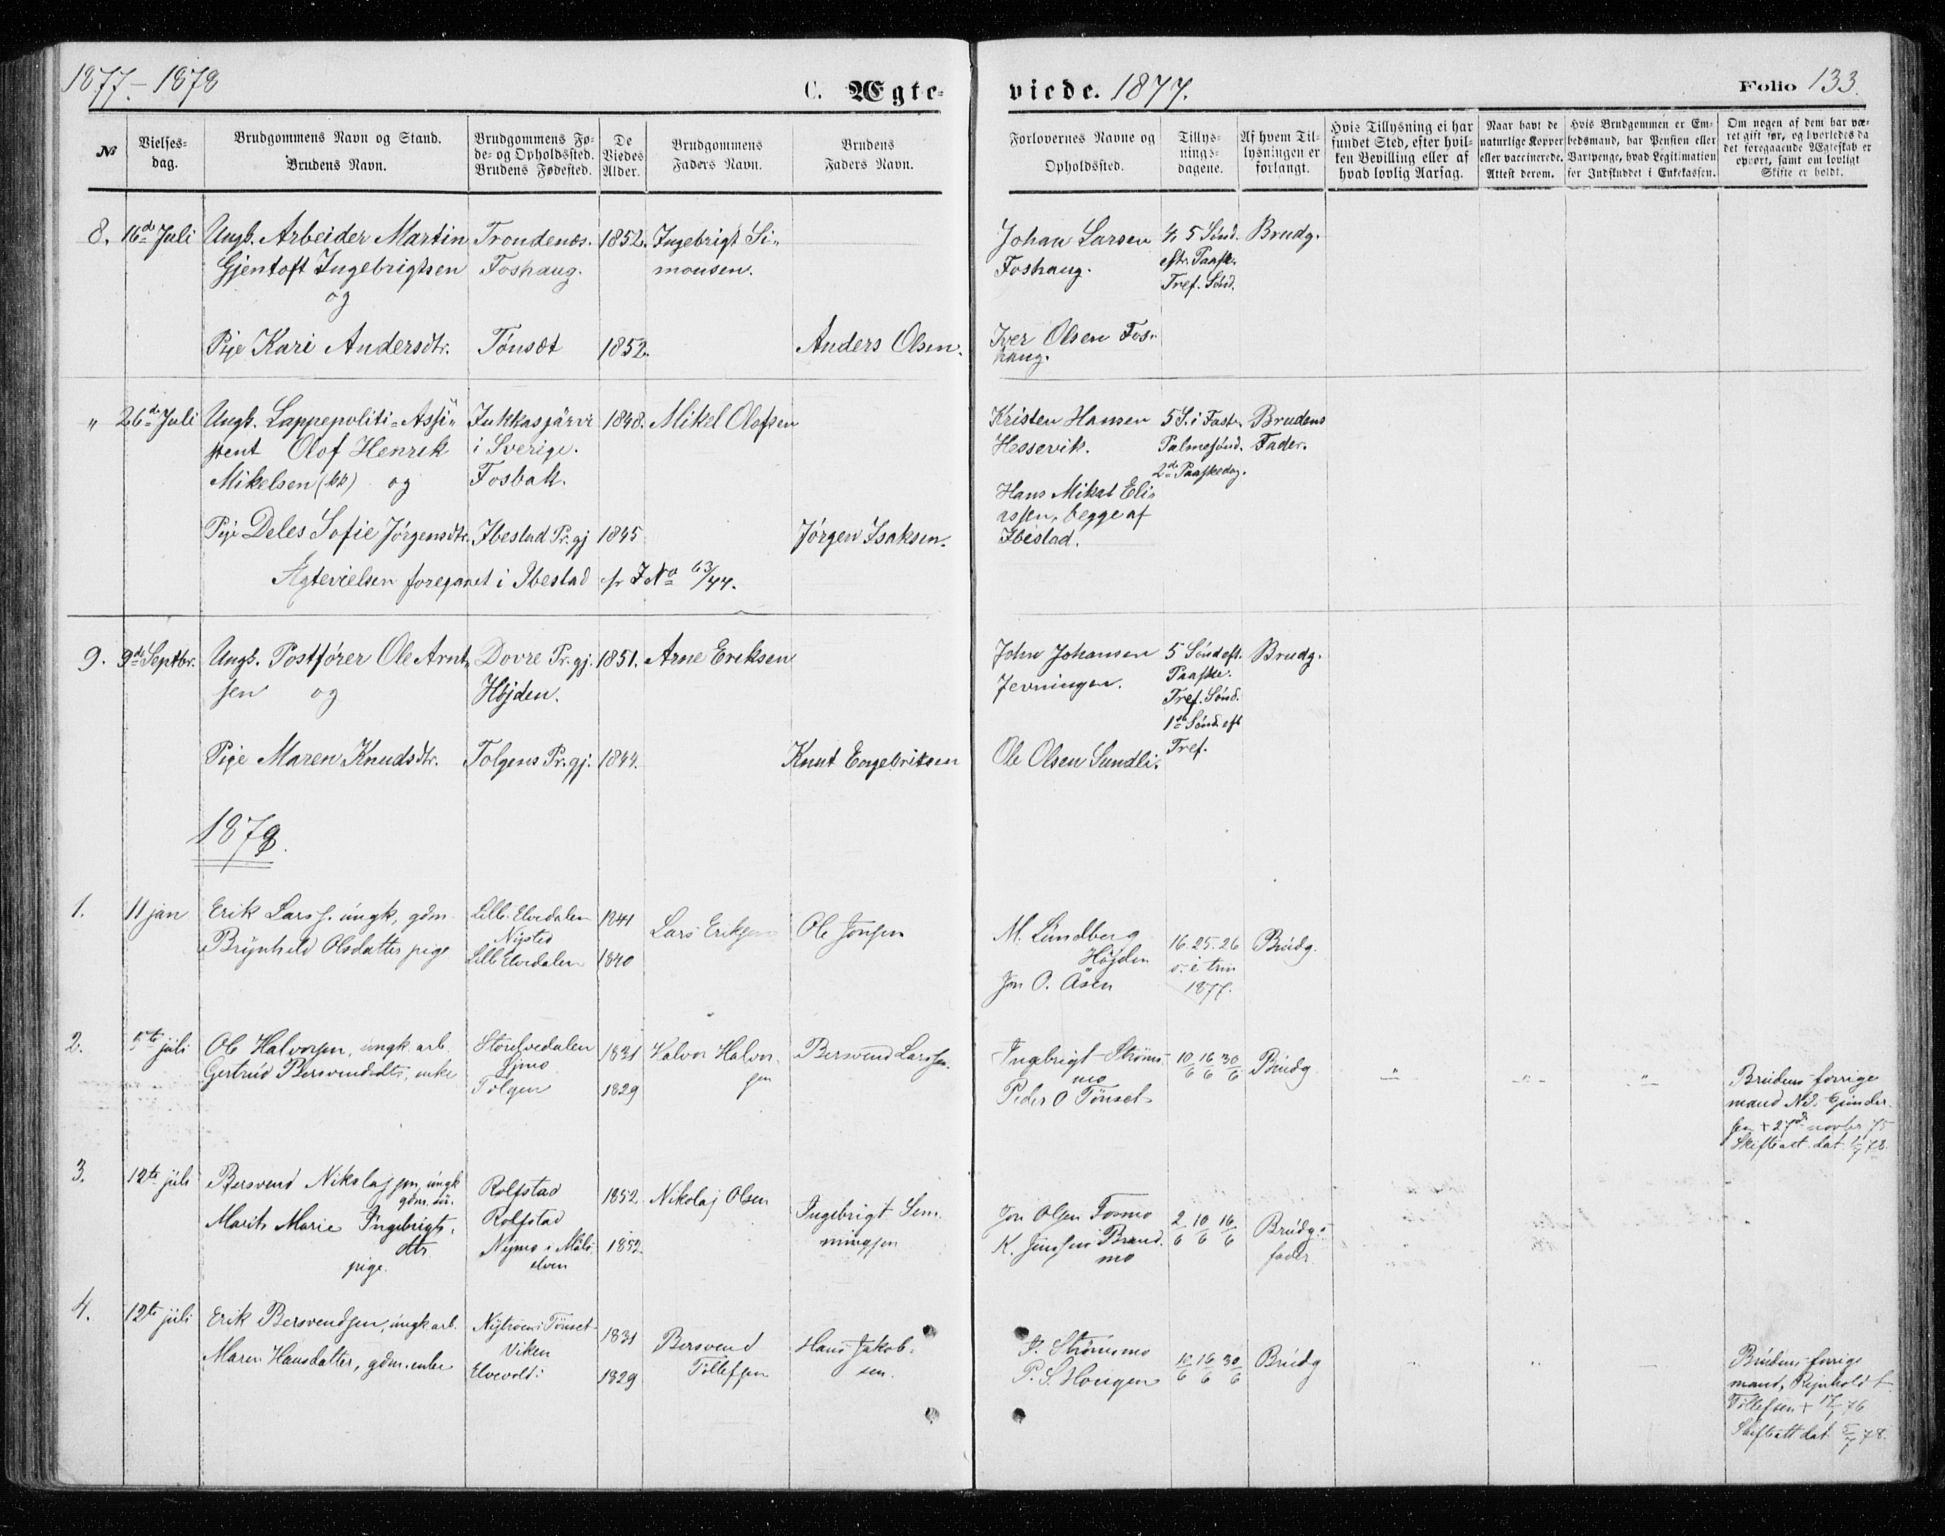 1877-1878
C. Ægte-
viede. 1877.
Folio 133.
№
Vielses-
dag.
Brudgommens Navn og Stand.
Brudens Navn.
Brudgommens Fø-
de- og Opholdssted.
Brudens Fødested.
De
Viedes
Alder.
Brudgommens
Faders Navn.
Brudens
Faders Navn.
Forlovernes Navne og
Opholdssted.
Tillys-
nings-
dagene.
Af hvem Til-
lysningen er
forlangt.
Hvis Tillysning ei har
fundet Sted, efter hvil-
ken Bevilling eller af
hvad lovlig Aarsag.
Naar havt de
naturlige Kopper
eller vaccinerede.
Attest derom.
Hvis Brudgommen er Em-
bedsmand, har Pension eller
Vartpenge, hvad Legitimation
for Indskuddet i Enkekassen.
Om nogen af dem har væ-
ret gift før, og hvorledes da
det foregaaende Ægteskab er
ophørt, samt om lovligt
Skifte er holdt.
8. 16de Juli Ungk. Arbeider Martin Trondenæs. 1852. Ingebrigt Si-
Gjentoft Ingebrigtsen Foshaug. monsen.
og
Pige Kari Andersdtr. Tønsæt 1852. Anders Olsen.
Johan Larsen 4, 5 Sønd. Brudg.
Foshaug. eftr. Paask.
Tref. Sønd.
Iver Olsen Fos-
haug.
" 26de Juli Ungk. Lappepoliti-Assi- Jukkasjärvi 1848. Mikel Olofsen
stent Olof Henrik i Sverige.
Mikelsen (kv) og Fosbak.
Pige Deles Sofie Jørgensdtr. Ibestad Pr.gj 1845 Jørgen Isaksen.
Ægtevielsen foregaaet i Ibestad cfr J No 63/77.
Kristen Hansen 5 S. i Fast. Brudens
Hessevik. Palmesønd. Fader.
2de Paaskedag.
Hans Mikal Eli-
assen, begge af
Ibestad.
9. 9de Septbr. Ungk. Postfører Ole Arnt- Dovre Pr.gj. 1851. Arne Eriksen
sen og Højden.
Pige Maren Knudsdtr. Tolgens Pr.gj. 1844. Knut Engebritsen
John Johansen 5 Sønd eft. Brudg.
Jevningen. Paaske.
Tref. Sønd.
1ste Sønd. eft
Ole Olsen Sundli. Tref.
1878.
1. 11 jan Erik Larss. ungk, gdm. Lille Elvedalen 1841 Lars Eriksen Ole Jonsen
Nysted
Brynhild Olsdatter pige Lille Elvedalen 1840
M. Lundberg 16. 25. 26 Brudg.
Højden s. i trin
Jon O. Åsen 1877.
2. 5te juli Ole Halvorsen, ungk. arb. Storelvedalen 1831 Halvor Halvor- Bersvend Larssen.
sen
Gertrud Bersvendsdtr, enke Tolgen 1829
Ingebrigt Strøms- 10/6 16/6 30/6 Brudg
mo
Peder O Tønset
" " "
Brudens forrige
mand Nils Gunder-
sen + 27de novber 75
Skifteatt. dat.
3. 12te juli Bersvend Nikolajsen, ungk Rolfstad 1852. Nikolaj Olsen
gdm.
Marit Marie Ingebrigts. Rolfstad
dtr. Nymo i Måls- 1852. Ingebrigt Sem-
pige. elven mingsen
Jon Olsen Fosmo 2/6 10/6 16/6 Brudg:
K. Jenssen Brand- fader
mo
4. 12te juli Erik Bersvendsen, ungk arb. Nytrøen i Tønset 1831 Bersvend Hans Jakob-
Viken Tollefsen sen.
Maren Hansdatter, gdm. enke Elvevold: 1829
I. Strømsmo 10/6 16/6 30/6 Brudg
P. S. Hougen
Brudens forrige
mand, Rejnholdt
Tollefsen + 17/1 76
Skifteatt dat 5/7 78.